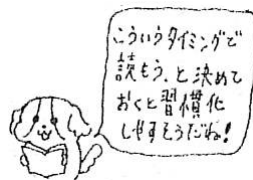 こういうタイミングで
読もう、と決めて
おくと習慣化
しやすそうだね!